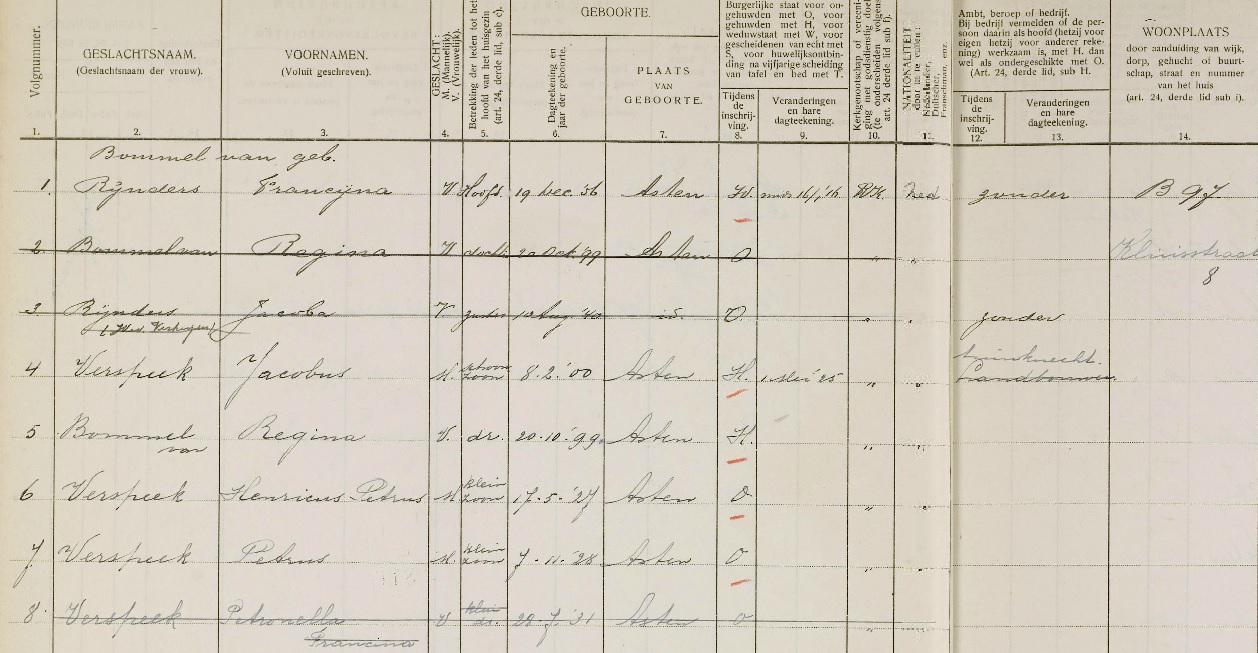 Volgnummer.
GESLACHTSNAAM.
(Geslachtsnaam der vrouw).
VOORNAMEN.
(Voluit geschreven).
GESLACHT:
M. (Mannelijk).
V. (Vrouwelijk).
Betrekking der leden tot het
hoofd van het huisgezin
(art. 24, derde lid, sub c).
GEBOORTE.
Dagteekening en
jaar der geboorte.
PLAATS
VAN
GEBOORTE.
Burgerlijke staat voor on-
gehuwden met O, voor
gehuwden met H, voor
weduwstaat met W, voor
gescheidenen van echt met
S, voor huwelijksontbin-
ding na vijfjarige scheiding
van tafel en bed met T.
Tijdens
de
inschrij-
ving.
Veranderingen
en hare
dagteekening.
Kerkgenootschap of vereeni-
ging met godsdienstig doel
(te onderscheiden volgens
art. 24 derde lid sub f).
NATIONALITEIT
door in te vullen:
Nederlander,
Duitscher,
Franschman, enz.
Ambt, beroep of bedrijf.
Bij bedrijf vermelden of de per-
soon daarin als hoofd (hetzij voor
eigen hetzij voor anderer reke-
ning) werkzaam is, met H. dan
wel als ondergeschikte met O.
(Art. 24, derde lid, sub H.
Tijdens
de
inschrij-
ving.
Veranderingen
en hare
dagteekening.
WOONPLAATS
door aanduiding van wijk,
dorp, gehucht of buurt-
schap, straat en nummer
van het huis
(art. 24, derde lid sub i).
1. 2. 3. 4. 5. 6. 7. 8. 9. 10. 11. 12. 13. 14.
Bommel van geb.
1. Rijnders Francijna V Hoofd. 19 Dec. '56 Asten W. RK. Ned zonder B 97
2. Bommel van Regina V docht. 20 Oct. '99 Asten O " " Kluisstraat
8
3. Rijnders Jacoba V zuster 10 Aug '40 id. O. " " zonder
(Wed. Verheijen)
4 Verspeek Jacobus M. schoon zoon 8.2.'00 Asten H. 1 Mei '25 " " tuinknecht.
Landbouwer
5 Bommel Regina V. dr. 20-10-'99 Asten H. " "
van
6 Verspeek Henricus Petrus M klein zoon 17-5-'27 Asten O " "
7 Verspeek Petrus M. klein zoon 7-11-'28 Asten O " "
8. Verspeek Petronella V klein dr. 28-7-'31 Asten O " "
Francina